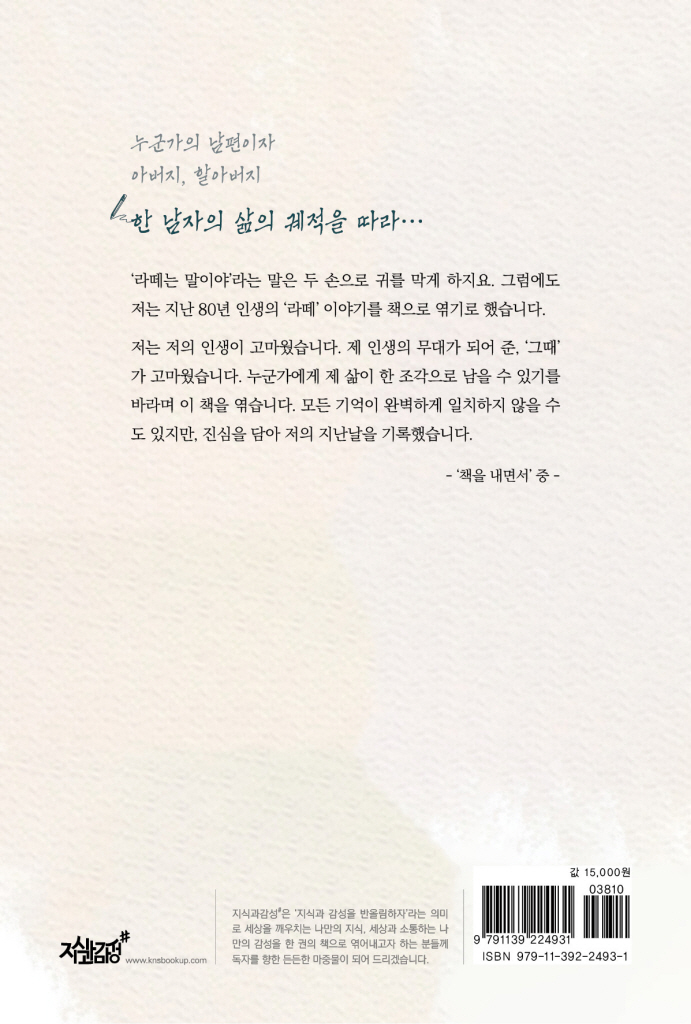 누군가의 남편이자
아버지, 할아버지
한 남자의 삶의 궤적을 따라…
‘라떼는 말이야’라는 말은 두 손으로 귀를 막게 하지요. 그럼에도
저는 지난 80년 인생의 ‘라떼’ 이야기를 책으로 엮기로 했습니다.
저는 저의 인생이 고마웠습니다. 제 인생의 무대가 되어 준, ‘그때’
가 고마웠습니다. 누군가에게 제 삶이 한 조각으로 남을 수 있기를
바라며 이 책을 엮습니다. 모든 기억이 완벽하게 일치하지 않을 수
도 있지만, 진심을 담아 저의 지난날을 기록했습니다.
- ‘책을 내면서’ 중 -
지식과감성# www.knsbookup.com
지식과감성#은 ‘지식과 감성을 반올림하자’라는 의미
로 세상을 깨우치는 나만의 지식, 세상과 소통하는 나
만의 감성을 한 권의 책으로 엮어내고자 하는 분들께
독자를 향한 든든한 마중물이 되어 드리겠습니다.
값 15,000원
03810
9 791139 224931
ISBN 979-11-392-2493-1